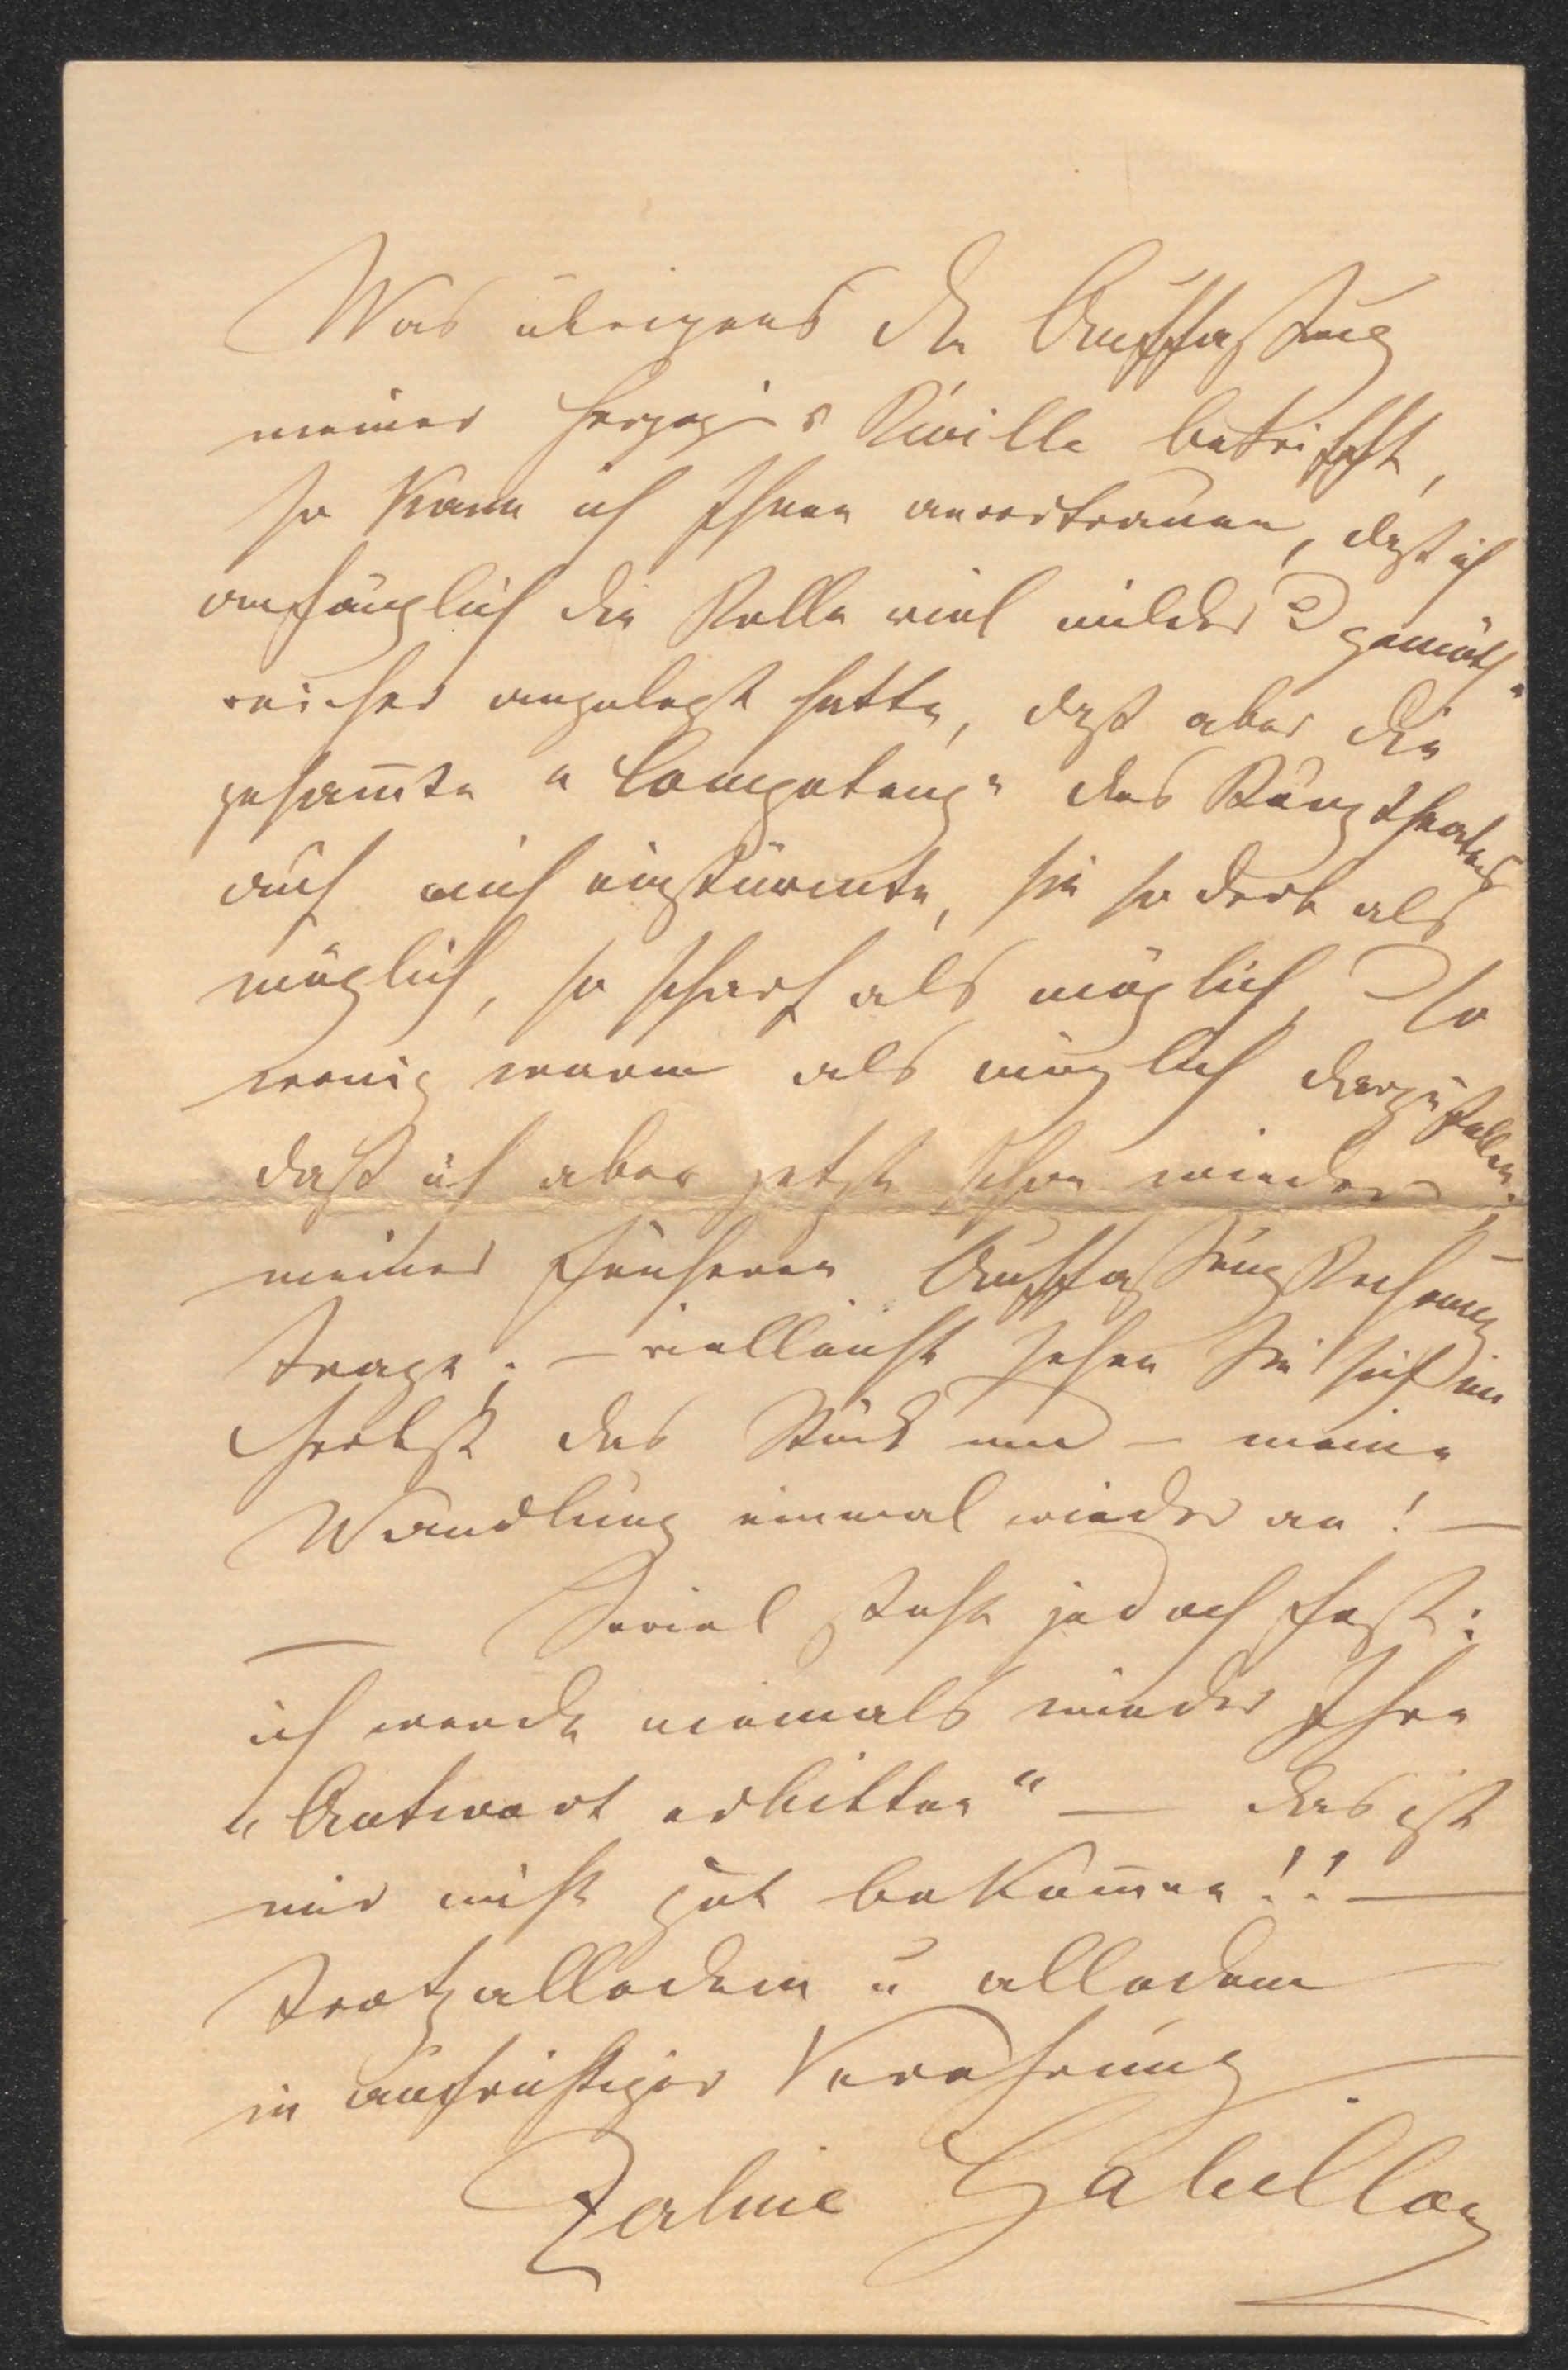 Was übrigens die Auffassung
meiner Herzogin v Réville betrifft,
so kann ich Ihnen anvertrauen, daß ich
anfänglich die Rolle viel milder u gemüth-
reicher angelegt hatte, daß aber die
gesam̅te "Competenz" des Burgtheaters
auf mich einstürmte, sie so derb als
möglich, so scharf als möglich, u so
wenig warm als möglich darzustellen;
daß ich aber jetzt schon wieder
meiner früheren Auffassung Rechnung
trage; – vielleicht sehen Sie sich im
Herbst das Stück und – meine
Wandlung einmal wieder an! –
– Soviel steht jedoch fest:
ich werde niemals wieder Ihre
„Antwort erbitten" – das ist
mir nicht gut bekom̅en!! –
Trotz alledem u alledem
in aufrichtiger Verehrung
Zerline Gabillon